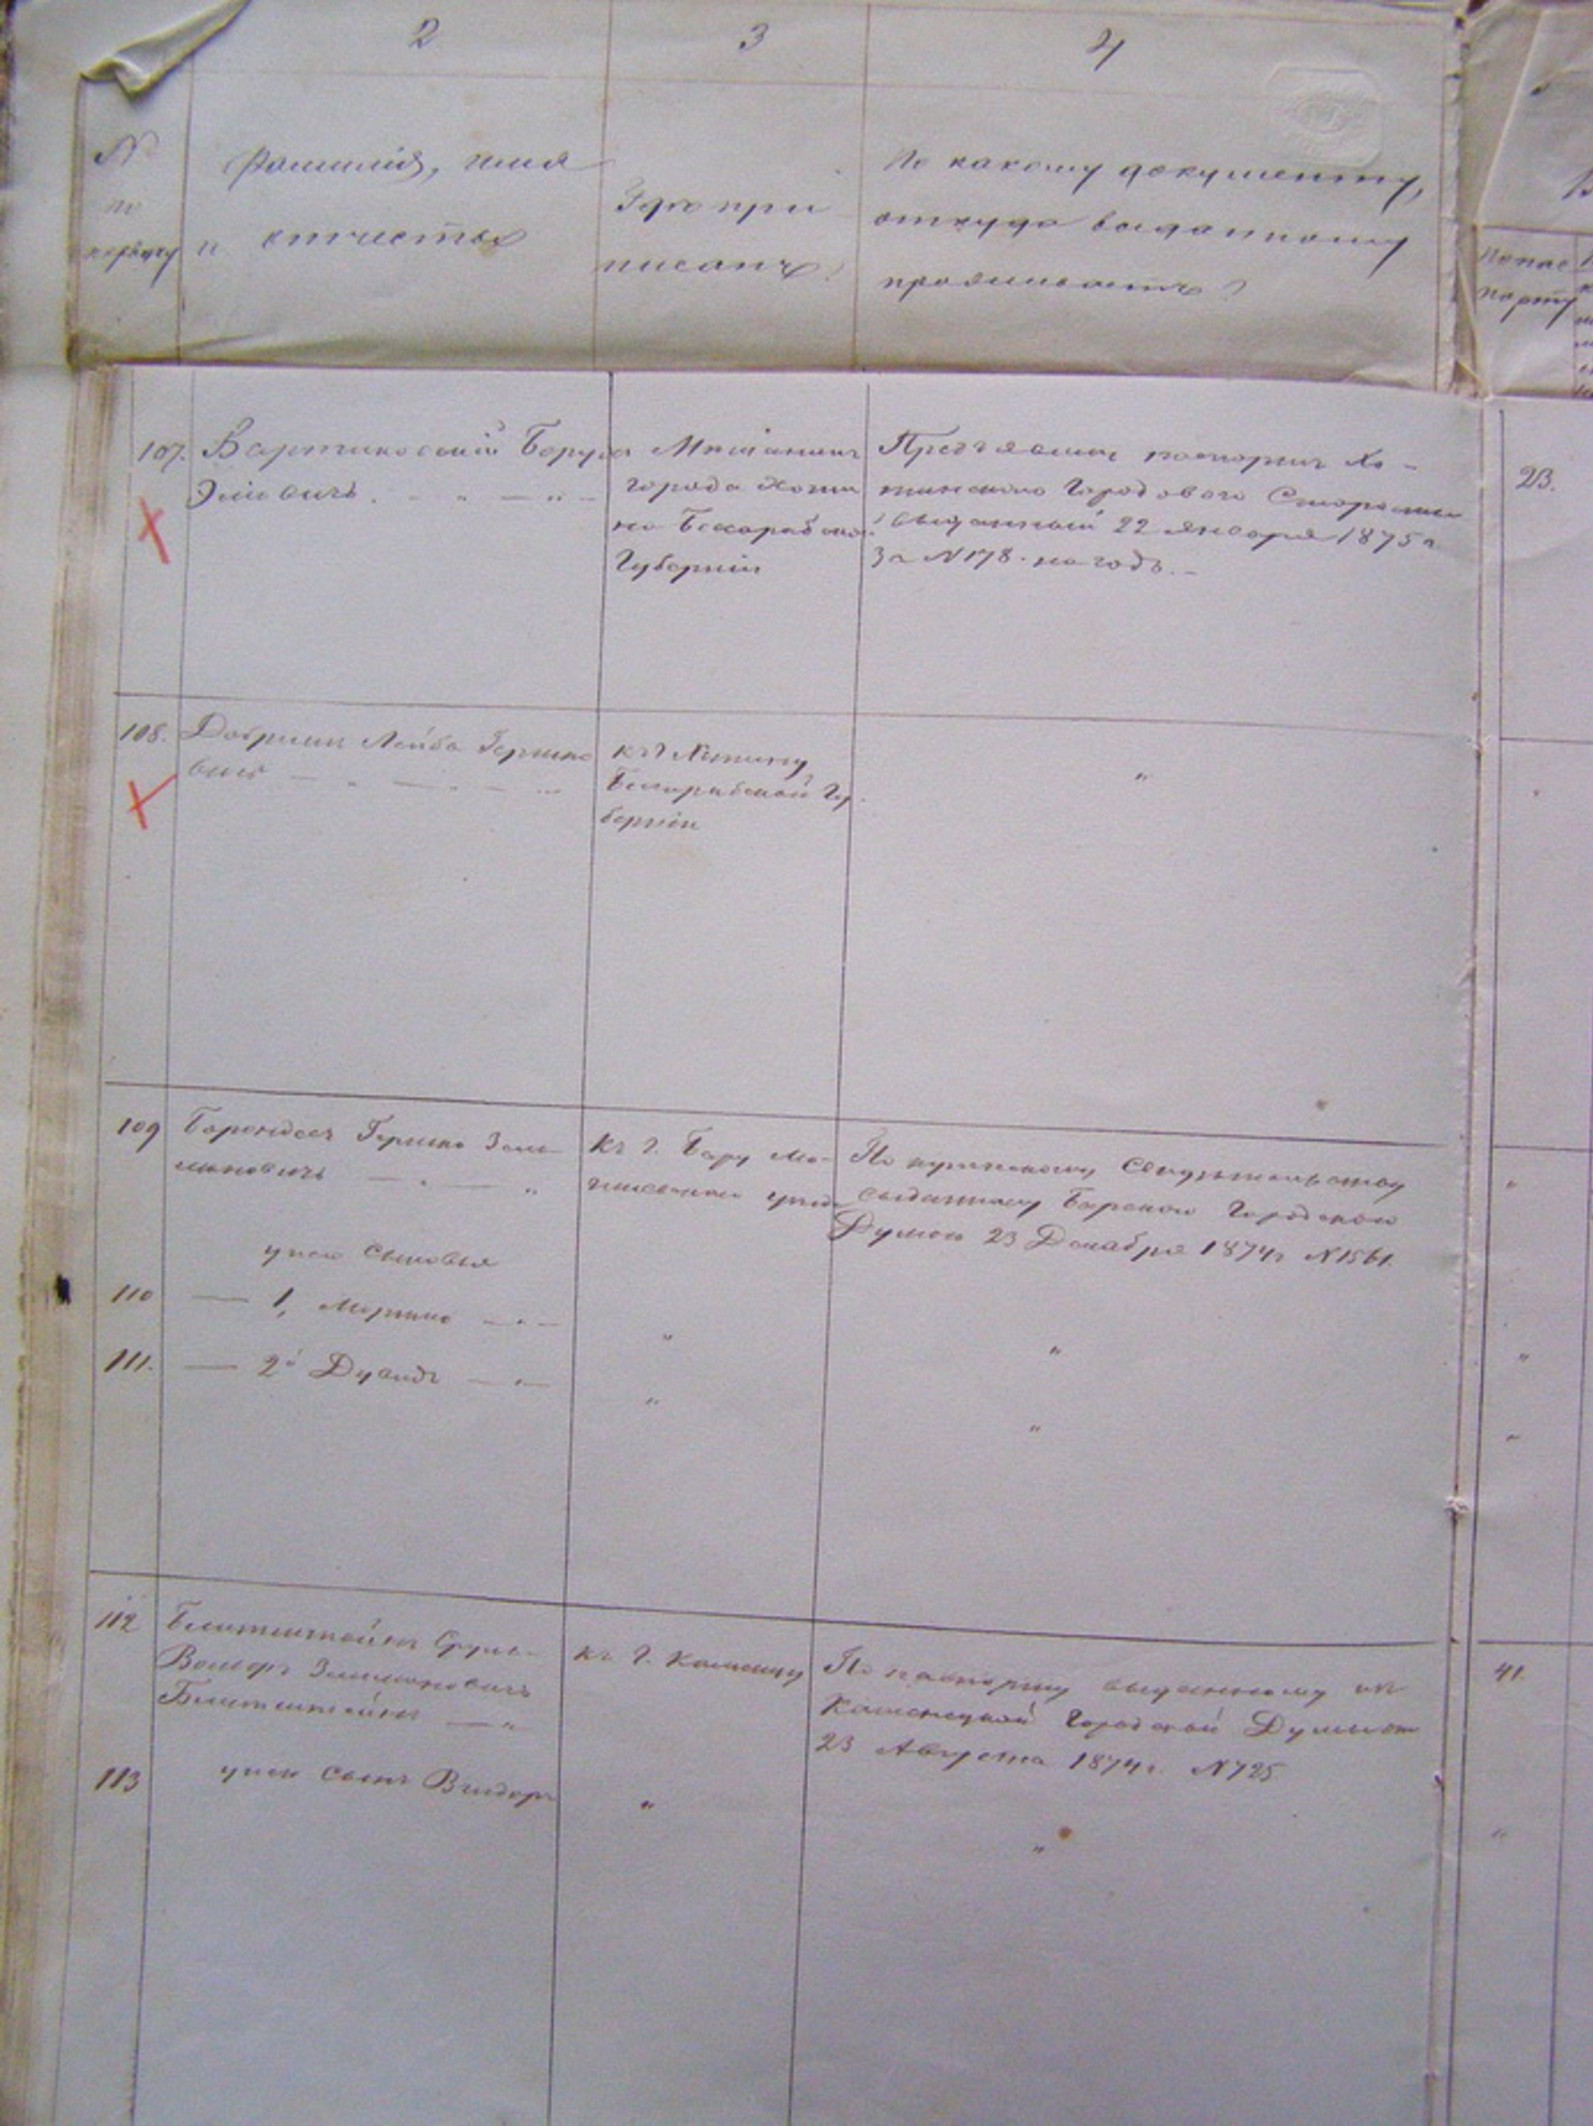 2
3
4
N
по
порядку
Фамилія, имя
и отчество
Гдѣ при
писанъ?
По какому документу,
откуда выданному
проживаетъ?
по пас
порту
107.
Вартиковскій Боруха
Эліовичъ.
Мѣщанинъ
города Хоти
на Бессарабской
Губерніи
Предъявилъ паспортъ Хо-
тинского Городового Старосты
выданный 22 января 1875 г.
За N 178. на годъ.
23.
108.
Лейба Гершко
вичъ
къ г.
Бессарабской Гу
берніи
"
109
Гершко Заль
мановичъ
къ г. Бару Мо-
гилевского уѣзда
По купеческому Свидѣтельству
выданному Барскою Городскою
Думою 23 Декабря 1874 г. N 1561.
"
у него сыновья
110
1, Мошко
"
"
"
111.
2й Дувидъ
"
"
"
112
Сруль-
Вольфъ Зельмановичъ
къ г. Каменцу
По паспорту выданному изъ
Каменецкой Городской Думы от
23 Августа 1874 г. N 725.
41.
113
у него сынъ
"
"
"